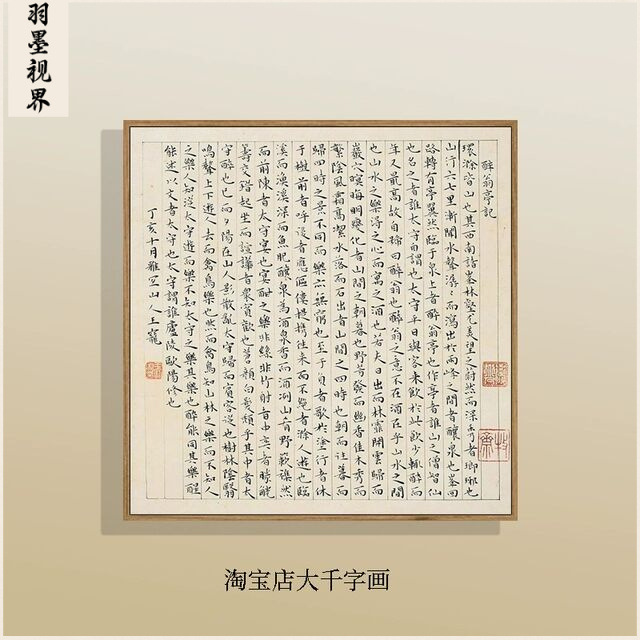 羽墨视界
醉翁亭記
環滁皆山也其西南諸峯林壑尤美望之蔚然而深秀者瑯琊也
山行六七里漸聞水聲潺〻而瀉出于兩峰之間者釀泉也峯回
路轉有亭翼然臨于泉上者醉翁亭也作亭者誰山之僧智仙
也名之者誰太守自謂也太守與客来飲於此飲少輒醉而
年又最高故自稱曰醉翁也醉翁之意不在酒在乎山水之間
也山水之樂得之心而寓之酒也若夫日出而林霏開雲歸而
巖穴暝晦明變化者山間之朝暮也野芳發而幽香佳木秀而
繁陰風霜高潔水落而石出者山間之四時也朝而往暮而
歸四時之景不同而樂亦無窮也至于負者歌於塗行者休
于樹前者呼後者應傴僂提攜往来而不絕者滁人遊也臨
溪而漁溪深而魚肥釀泉為酒泉香而酒冽山肴野蔌雜然
而前陳者太守宴也宴酣之樂非絲非竹射者中奕者勝觥
籌交錯起坐而諠譁者衆賓歡也蒼顏白髮頹乎其中者太
守醉也已而夕陽在山人影散亂太守歸而賓客從也樹林陰翳
鳴聲上下遊人去而禽鳥樂也然而禽鳥知山林之樂而不知人
之樂人知從太守遊而樂不知太守之樂其樂也醉能同其樂醒
能述以文者太守也太守謂誰廬陵歐陽修也
丁亥十月雅宜山人王寵
淘宝店大千字画